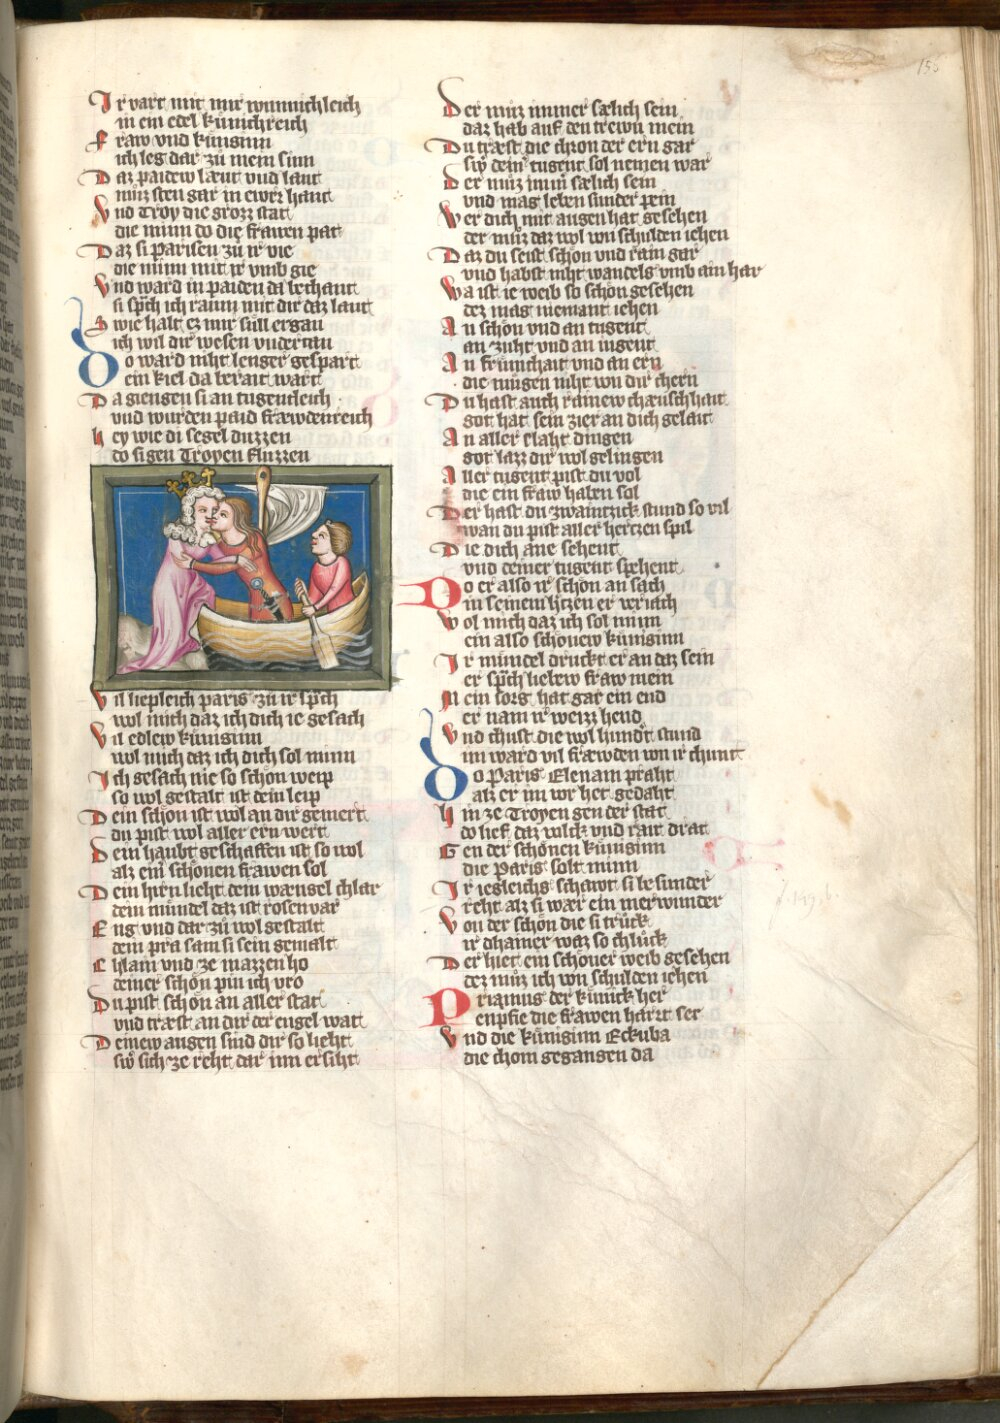 Ir vart mit mir wunnichleich
in ein edel künichreich
Fraw vnd künginn
ich leg dar zů mein sinn
Daz paidew læut vnd lant
můz sten gar in ewer hant
Vnd Troy die grozz stat
die minn do die frawen pat
Daz si Parisen zů ir vie
die minn mit ir vmb gie
Vnd ward in paiden da bechant
si spch ich raum mit dir daz lant
Swie halt ez mir süll ergan
ich wil dir wesen vndertan
Do ward niht lenger gespart
ein kiel da berait wart
Da giengen si an tugentleich
vnd wurden paid fræwdenreich
Hey wie di segel duzzen
do si gen Troyen fluzzen
Vil liepleich paris zů ir spch
wol mich daz ich dich ie gesach
Vil edlew künginn
wol mich daz ich dich sol minn
Ich gesach nie so schon weip
so wol gestalt ist dein leip
Dein schon ist wol an dir gemert
du pist wol aller ern wert
Dein haubt geschaffen ist so wol
alz ein schonen frawen sol
Dein hirn lieht dein wængel chlar
dein mündel daz ist rosenvar
Eng vnd dar zů wol gestalt
dein pra sam si sein gemalt
Chlain vnd ze mazzen ho
deiner schon pin ich vro
Du pist schon an aller stat
vnd træst an dir der engel wat
Deinew augen sind dir so lieht
sw sich ze reht dar inn ersiht
Der můz immer sælich sein
daz hab auf den trewn mein
Du træst die chron der ern gar
sw dein tugent sol nemen war
Der můz imm sælich sein
vnd mag leben sunder pein
Wer dich mit augen hat gesehen
der můz daz wol von schulden iehen
Daz du seist schon vnd rain gar
vnd habst niht wandels vmb ain har
Wa ist ie weib so schon gesehen
dez mag niemant iehen
An schon vnd an tugent
an zuht vnd an iugent
An frümchait vnd an ern
die mügen niht von dir chern
Du hast auch rainew chæuschhait
got hat sein zier an dich gelait
An aller slaht dingen
got lazz dir wol gelingen
Aller tugent pist du vol
die ein fraw haben sol
Der hast du zwaintzick stund so vil
wan du pist aller hertzen spil
Die dich ane sehent
vnd deiner tugent spehent
Do er also ir schon an sach
in seinem htzen er veriach
Wol mich daz ich sol minn
ein also schonew künginn
Ir mündel druckt er an daz sein
er spch liebew fraw mein
Mein sorg hat gar ein end
er nam ir weizz hend
Vnd chust die wol hundt stund
im ward vil fræwden von ir chunt
Do Paris Elenam praht
alz er im vor het gedaht
Hin ze Troyen gen der stat
do lief daz volck vnd rait drat
Gen der schonen künginn
die Paris solt minn
Ir iegleichs schawt si besunder
reht alz si wær ein merwunder
Von der schon die si trůck
ir dhainer waz so chlůck
Der hiet ein schoner weib gesehen
dez můz ich von schulden iehen
Priamus der künick her
enpfie die frawen hart ser
Vnd die künginn Eckuba
die chom gegangen da